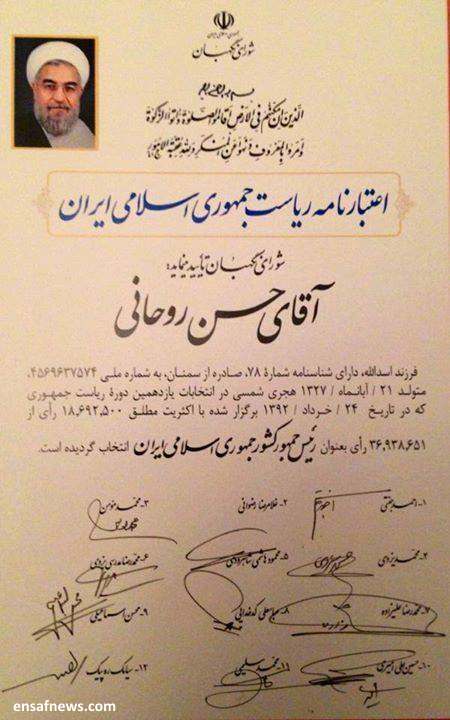 جمهوری اسلامی ایران
شورای نگهبان
بسم الله الرحمن الرحیم
الذین ان مکنّٰهم فی الارض اقاموا الصلوة و اتوا الزکوة
و امروا بالمعروف و نهوا عن المنکر و لله عاقبة الامور
اعتبارنامه ریاست جمهوری اسلامی ایران
شورای نگهبان تأیید مینماید:
آقای حسن روحانی
فرزند اسدالله، دارای شناسنامه شمارهٔ ۷۸، صادره از سمنان، به شماره ملی ۴۵۶۹۶۳۷۵۷۴،
متولد ۲۱ / آبانماه / ۱۳۲۷ هجری شمسی در انتخابات یازدهمین دورهٔ ریاست جمهوری
که در تاریخ ۲۴ / خرداد / ۱۳۹۲ برگزار شده با اکثریت مطلق ۱۸,۶۹۲,۵۰۰ رأی از
۳۶,۹۳۸,۶۵۱ رأی بعنوان رئیس جمهور کشور جمهوری اسلامی ایران انتخاب گردیده است.
۱- احمد جنتی ۲- غلامرضا رضوانی ۳- محمد مؤمن
۴- محمد یزدی ۵- محمود هاشمی شاهرودی ۶- محمدرضا مدرسی یزدی
۷- محمدرضا علیزاده ۸- عباسعلی کدخدایی ۹- محسن اسماعیلی
۱۰- حسینعلی امیری ۱۱- محمد سلیمی ۱۲- سیامک ره‌پیک
ensafnews.com